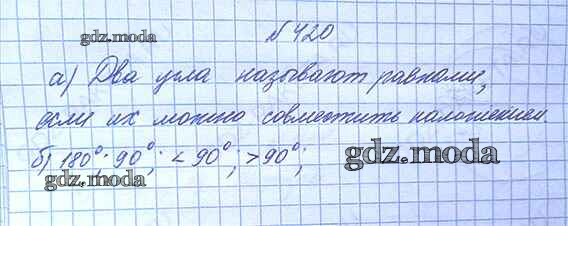 № 420
gdz.moda
а) Два угла называют равными,
если их можно совместить наложением.
б) 180°; 90°; < 90°; > 90°;
gdz.moda
gdz.moda